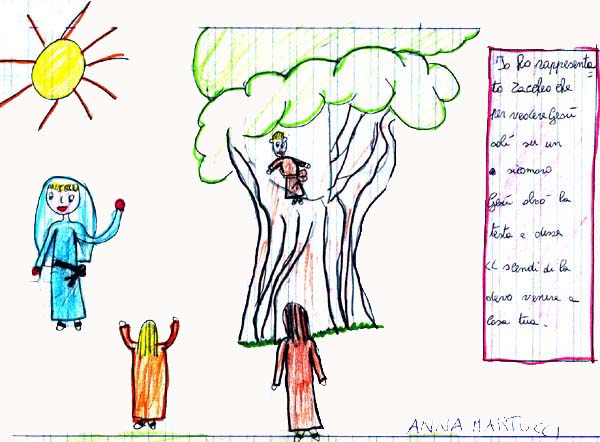 Io ho rappresenta=
to Zaccheo che
per vedere Gesù
salì su un
sicomoro
Gesù alzò la
testa e disse
<< scendi di la
devo venire a
casa tua.
ANNA MARTUCCI